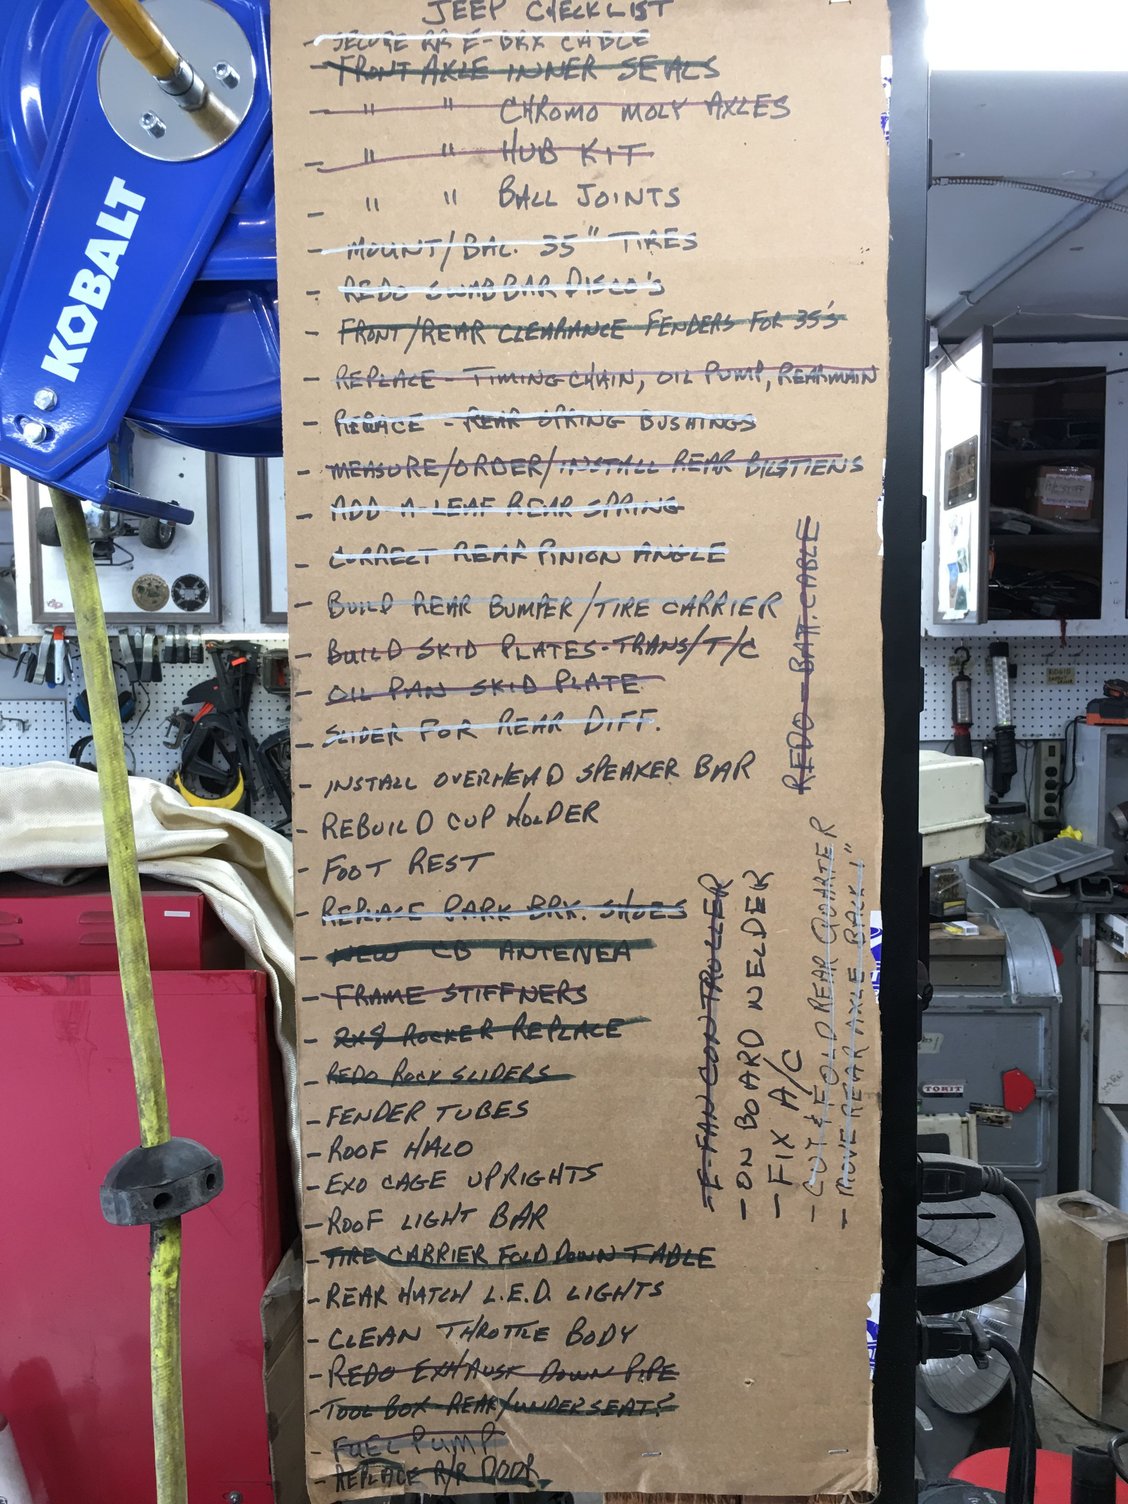 JEEP CHECKLIST
- SECURE RR E-BRK CABLE
- FRONT AXLE INNER SEALS
- " " CHROMO MOLY AXLES
- " " HUB KIT
- " " BALL JOINTS
- MOUNT/BAL. 35" TIRES
- REDO SWAB BAR DISCO'S
- FRONT/REAR CLEARANCE FENDERS FOR 35'S
- REPLACE - TIMING CHAIN, OIL PUMP, REAR MAIN
- REPLACE - REAR SPRING BUSHINGS
- MEASURE/ORDER/INSTALL REAR BILSTIENS
- ADD A-LEAF REAR SPRING
- CORRECT REAR PINION ANGLE
- BUILD REAR BUMPER/TIRE CARRIER
- BUILD SKID PLATES - TRANS/T/C
- OIL PAN SKID PLATE
- SLIDER FOR REAR DIFF.
- INSTALL OVERHEAD SPEAKER BAR
- REBUILD CUP HOLDER
- FOOT REST
- REPLACE PARK BRK. SHOES
- NEW CB ANTENEA
- FRAME STIFFNERS
- 2X8 ROCKER REPLACE
- REDO ROCK SLIDERS
- FENDER TUBES
- ROOF HALO
- EXO CAGE UPRIGHTS
- ROOF LIGHT BAR
- TIRE CARRIER FOLD DOWN TABLE
- REAR HATCH L.E.D. LIGHTS
- CLEAN THROTTLE BODY
- REDO EXHAUST DOWN PIPE
- TOOL BOX REAR/UNDER SEATS
- FUEL PUMP
- REPLACE R/R DOOR
REDO - BATT. CABLE
- E-FAN CONTROLLER
- ON BOARD WELDER
- FIX A/C
- CUT & FOLD REAR QUARTER
- MOVE REAR AXLE BACK 1"
KOBALT
TORIT